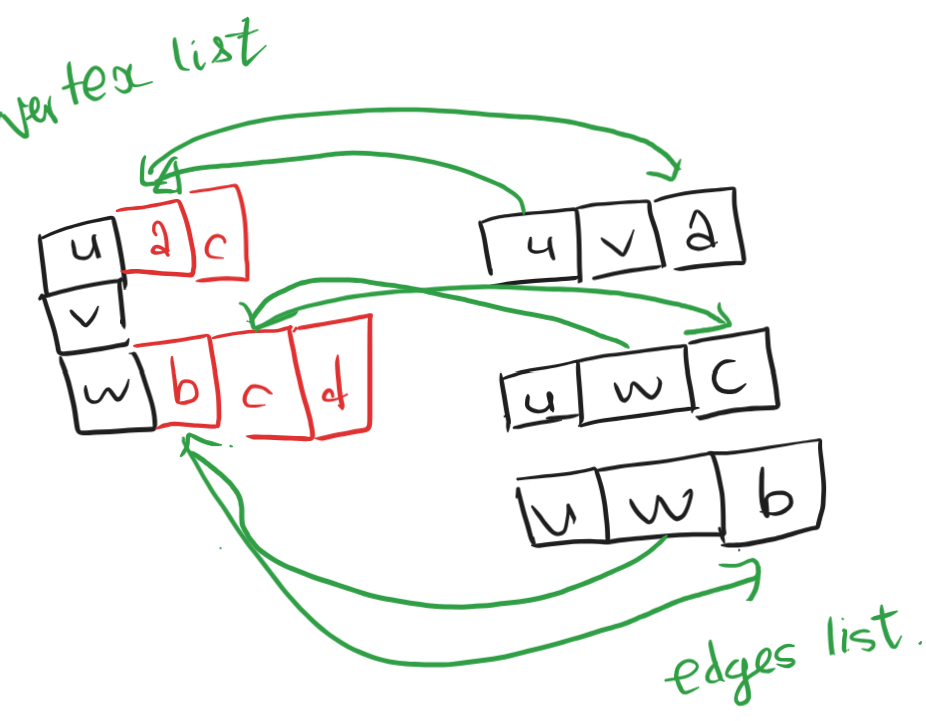 vertex list
u a c
u v a
v
w b c d
u w c
v w b
edges list.